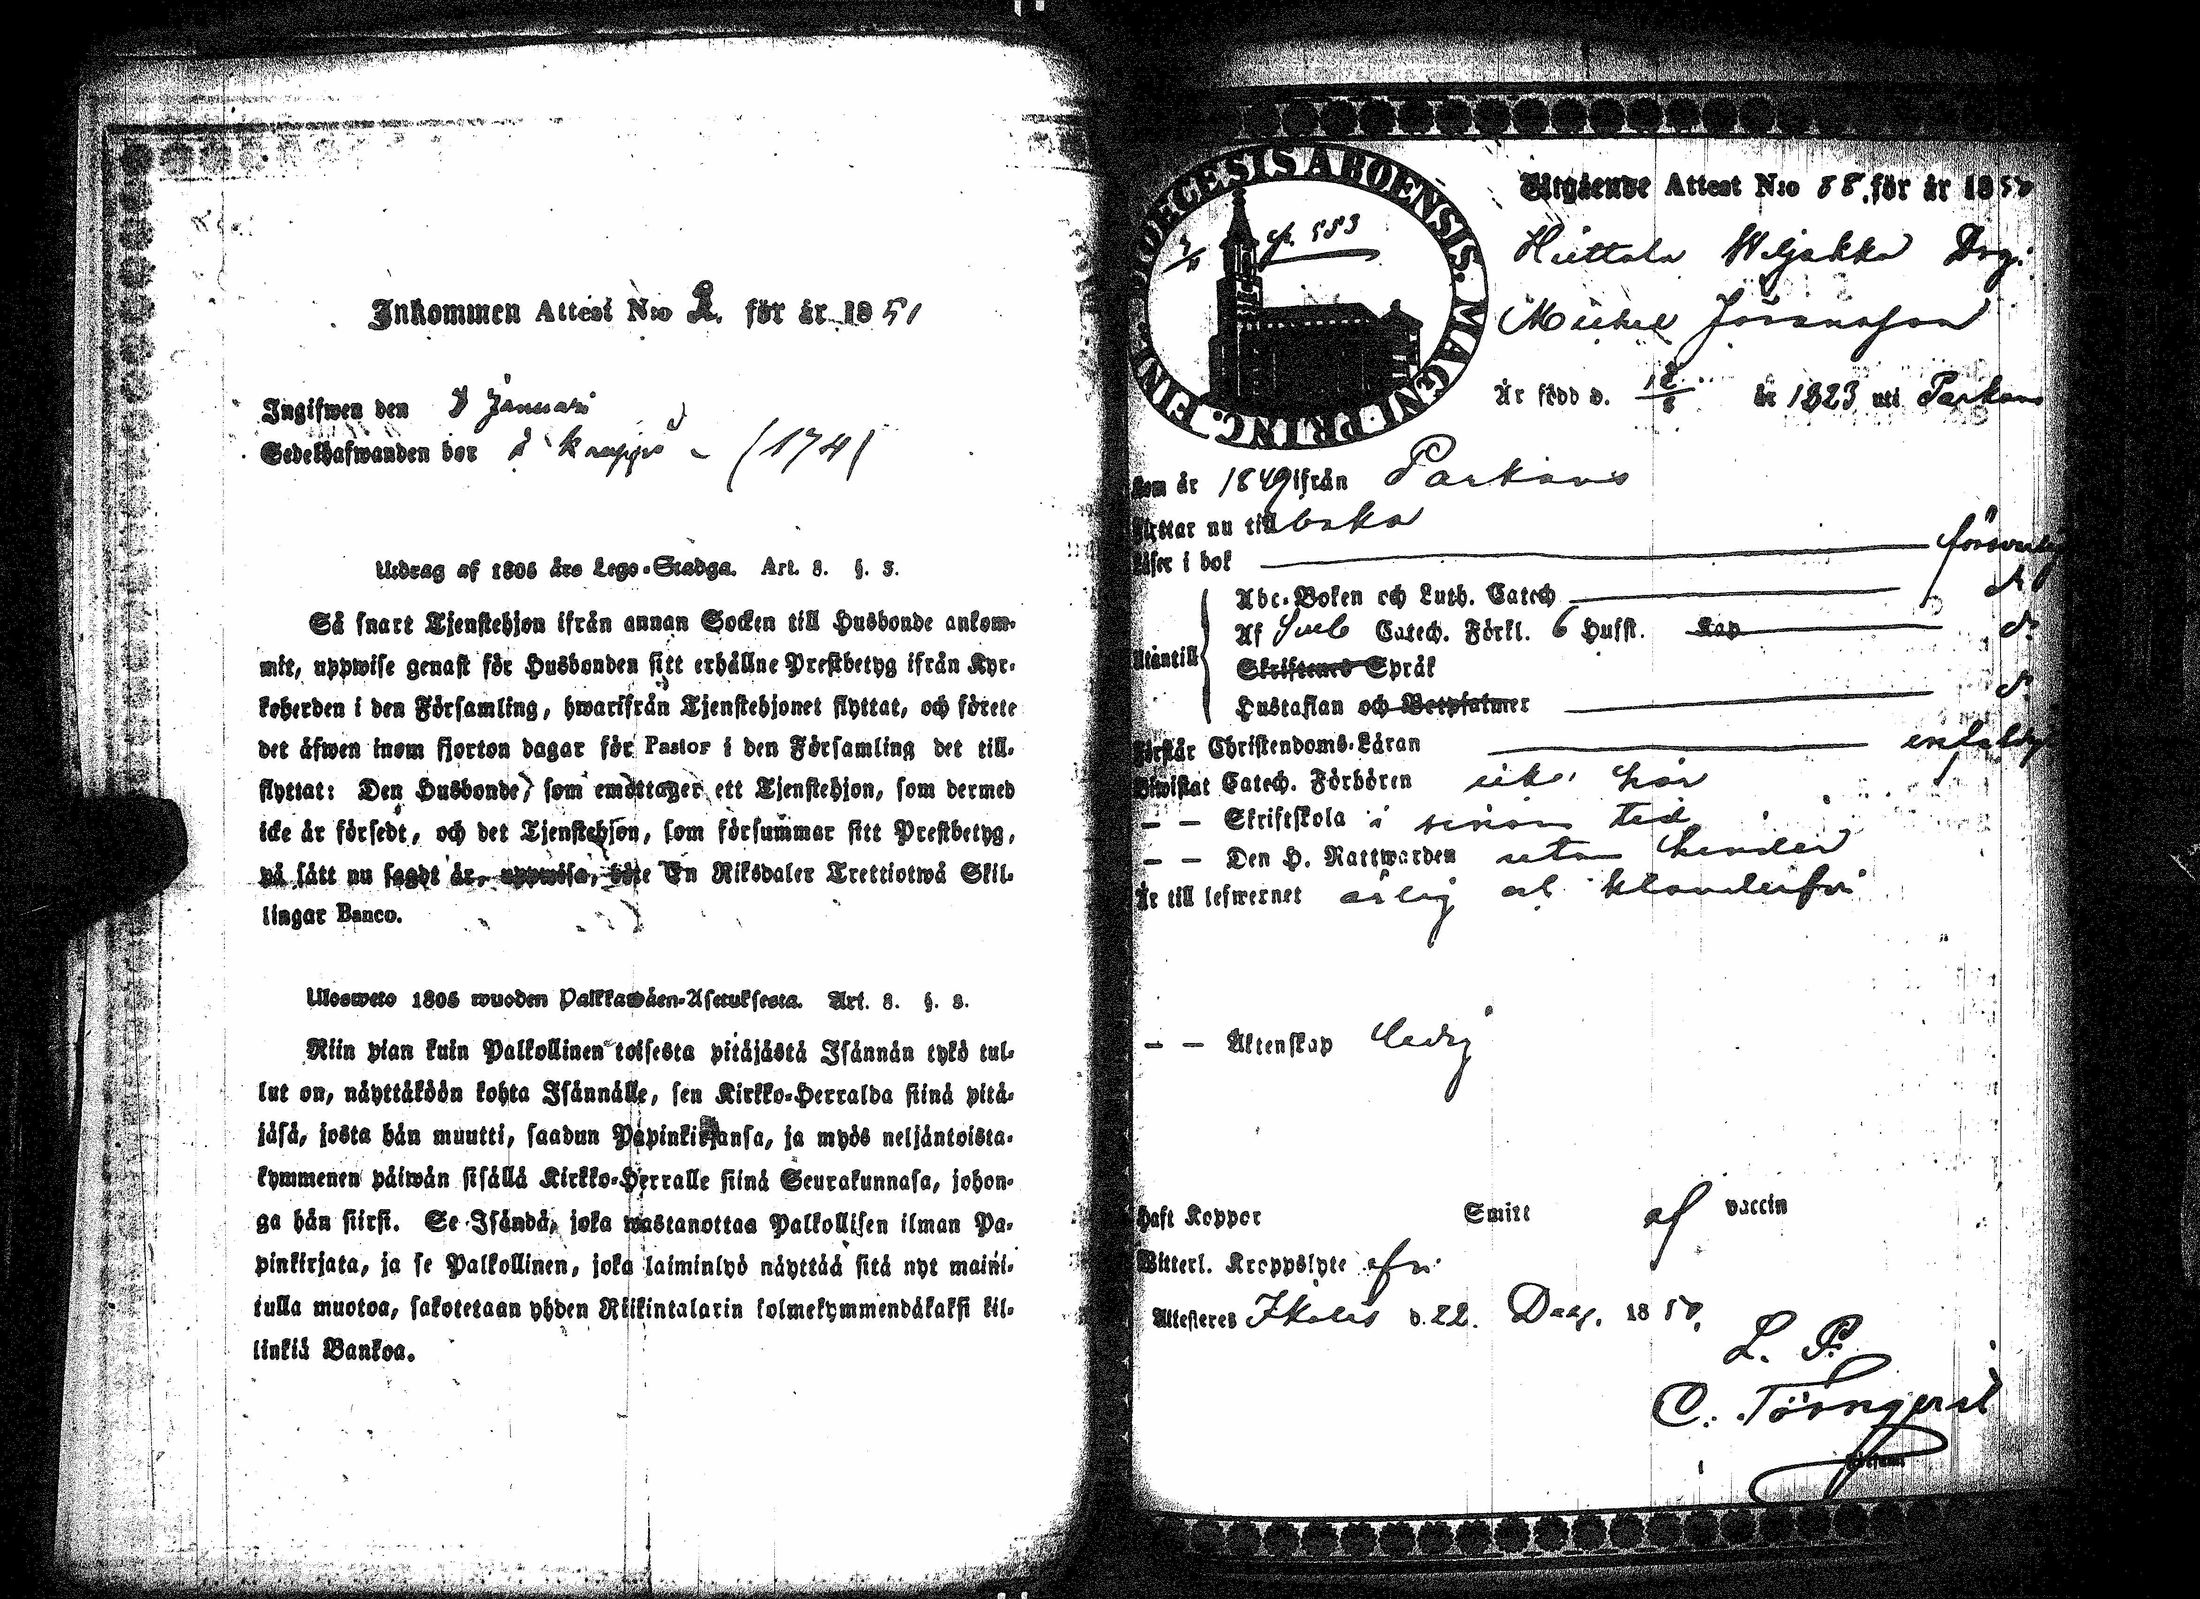 Inkommen Attest N:o 2. för år 1851
Ingifwen den 7 Januari
Sedelhafwanden bor å Knappo (174)
Utdrag af 1805 års Lego-Stadga. Art. 8. §. 3.
Så snart Tjenstehjon ifrån annan Socken till Husbonde ankom-
mit, uppwise genast för Husbonden sitt erhållne Prestbetyg ifrån Kyr-
koherden i den Församling, hwarifrån Tjenstehjonet flyttat, och förete
det äfwen inom fjorton dagar för Pastor i den Församling det till-
flyttat: Den Husbonde, som emottager ett Tjenstehjon, som dermed
icke är försedt, och det Tjenstehjon, som försummar sitt Prestbetyg,
på sätt nu sagdt är, uppwisa, böte En Riksdaler Trettiotwå Skil-
lingar Banco.
Uloswето 1805 wuoden Palkkawäen-Asetuksesta. Art. 8. §. 3.
Niin pian kuin Palkollinen toisesta pitäjästä Isännän tykö tul-
lut on, näyttäköön kohta Isännälle, sen Kirkko-Herralda siinä pitä-
jäsä, josta hän muutti, saadun Papinkirjansa, ja myös neljäntoista-
kymmenen päiwän sisällä Kirkko-Herralle siinä Seurakunnasa, johon-
ga hän siirsi. Se Isändä, joka wastanottaa Palkollisen ilman Pa-
pinkirjata, ja se Palkollinen, joka laiminlyö näyttää sitä nyt maini-
tulla muotoa, sakotetaan yhden Riikintalarin kolmekymmendäkaksi kil-
linkiä Bankoa.
DIOECESIS ABOENSIS. MAGNI PRINC. FIN.
p. 553
Utgående Attest N:o 88. för år 1850
Hiittola Weljakka Drg:
Michel Jöransson
Är född d. 12/8 år 1823 uti Parkano
Kom år 1849 ifrån Parkano
Flyttar nu tillbaka
Läser i bok försvarlig
Abc-Boken och Luth. Catech d:o
Utantill Af Sveb Catech. Förkl. 6 Husst. Kap d:o
Skriftenes Språk
Hustaflan och Botpsalmer d:o
Förstår Christendoms-Läran enfaldig
Biwistat Catech. Förhören icke här
— — Skriftskola i sinom tid
— — Den H. Nattwarden utan hinder
Är till lefwernet ärlig och klanderfri
— — Äktenskap ledig
Haft Koppor Smitt af vaccin
Witterl. Kroppslyte fri
Attesteras Ikalis d. 22. Dec. 1850.
L. P.
C. Törnqvist